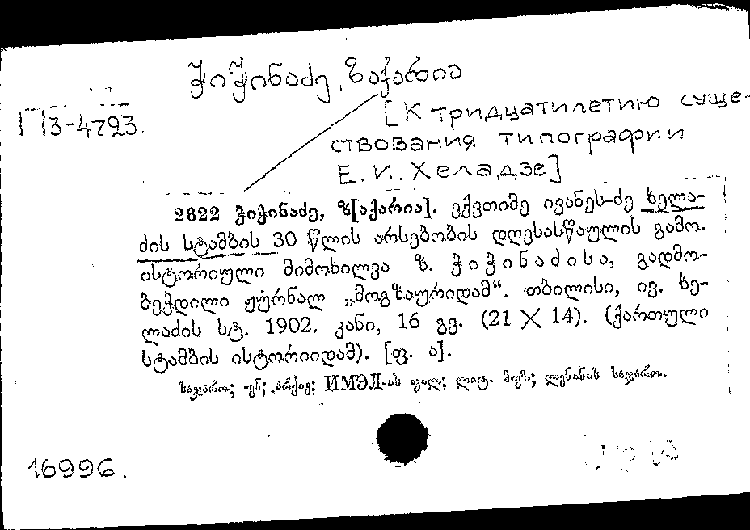 ჭიჭინაძე, ზაქარია
П3-4723.
[К тридцатилетию суще-
ствования типографии
Е. И. Хеладзе]
2822 ჭიჭინაძე, ზ[აქარია]. ექვთიმე ივანეს-ძე ხელა-
ძის სტამბის 30 წლის არსებობის დღესასწაულის გამო.
ისტორიული მიმოხილვა ზ. ჭიჭინაძისა, გადმო-
ბეჭდილი ჟურნალ „მოგზაურიდამ“. თბილისი, ივ. ხე-
ლაძის სტ. 1902. კანი, 16 გვ. (21 X 14). (ქართული
სტამბის ისტორიიდამ). [ფ. ა].
საჯარო; უნ; არქივ; ИМЭЛ-ის ფილ; ლიტ. მუზ; ლენინის საჯარო.
16996.